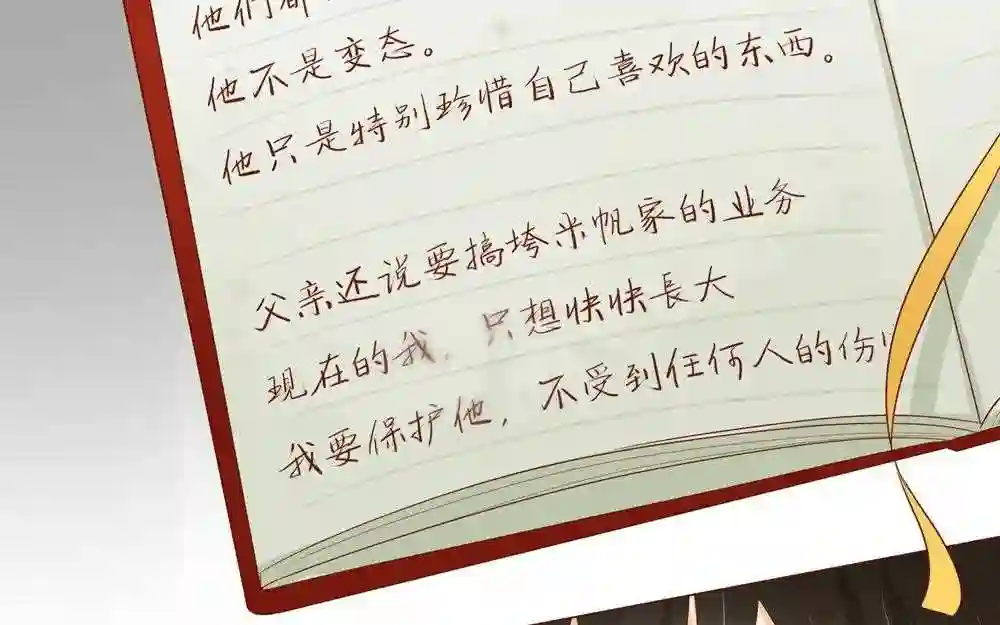 他们都
他不是变态。
他只是特别珍惜自己喜欢的东西。
父亲还说要搞垮米帆家的业务
现在的我，只想快快長大
我要保护他，不受到任何人的伤